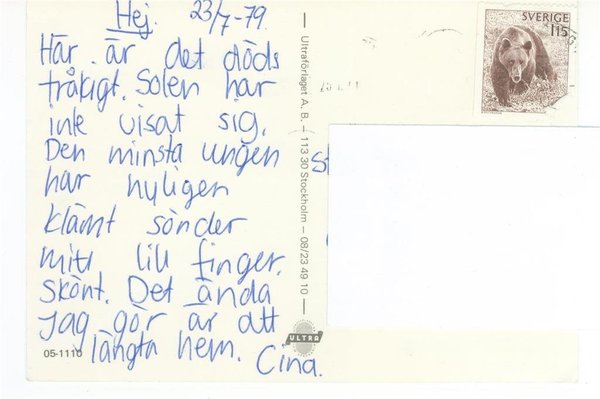 Hej. 23/7-79.
Här är det döds
tråkigt. Solen har
inte visat sig.
Den minsta ungen
har nyligen
klämt sönder
mitt lill finger.
skönt. Det ända
jag gör är att
längta hem. Cina.
05-1110
Ultraförlaget A. B. — 113 30 Stockholm — 08/23 49 10
ULTRA
SVERIGE
115